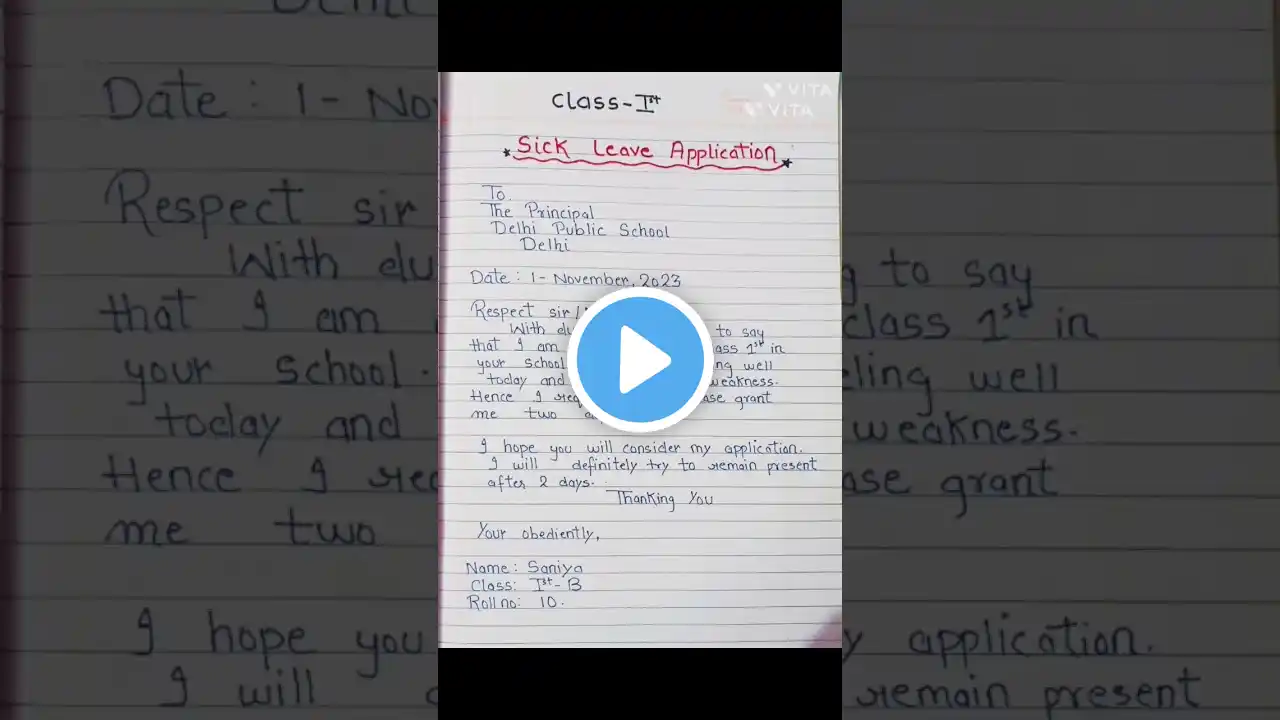 VITA
VITA
Class - Ist
Sick Leave Application
To.
The Principal
Delhi Public School
Delhi
Date : 1 - November, 2023
Respect sir /
With to say
that I am class 1st in
your school well
today and weakness.
Hence I grant
me two
I hope you will consider my application.
I will definitely try to remain present
after 2 days.
Thanking You
Your obediently,
Name : Saniya
Class: Ist - B
Roll no: 10.